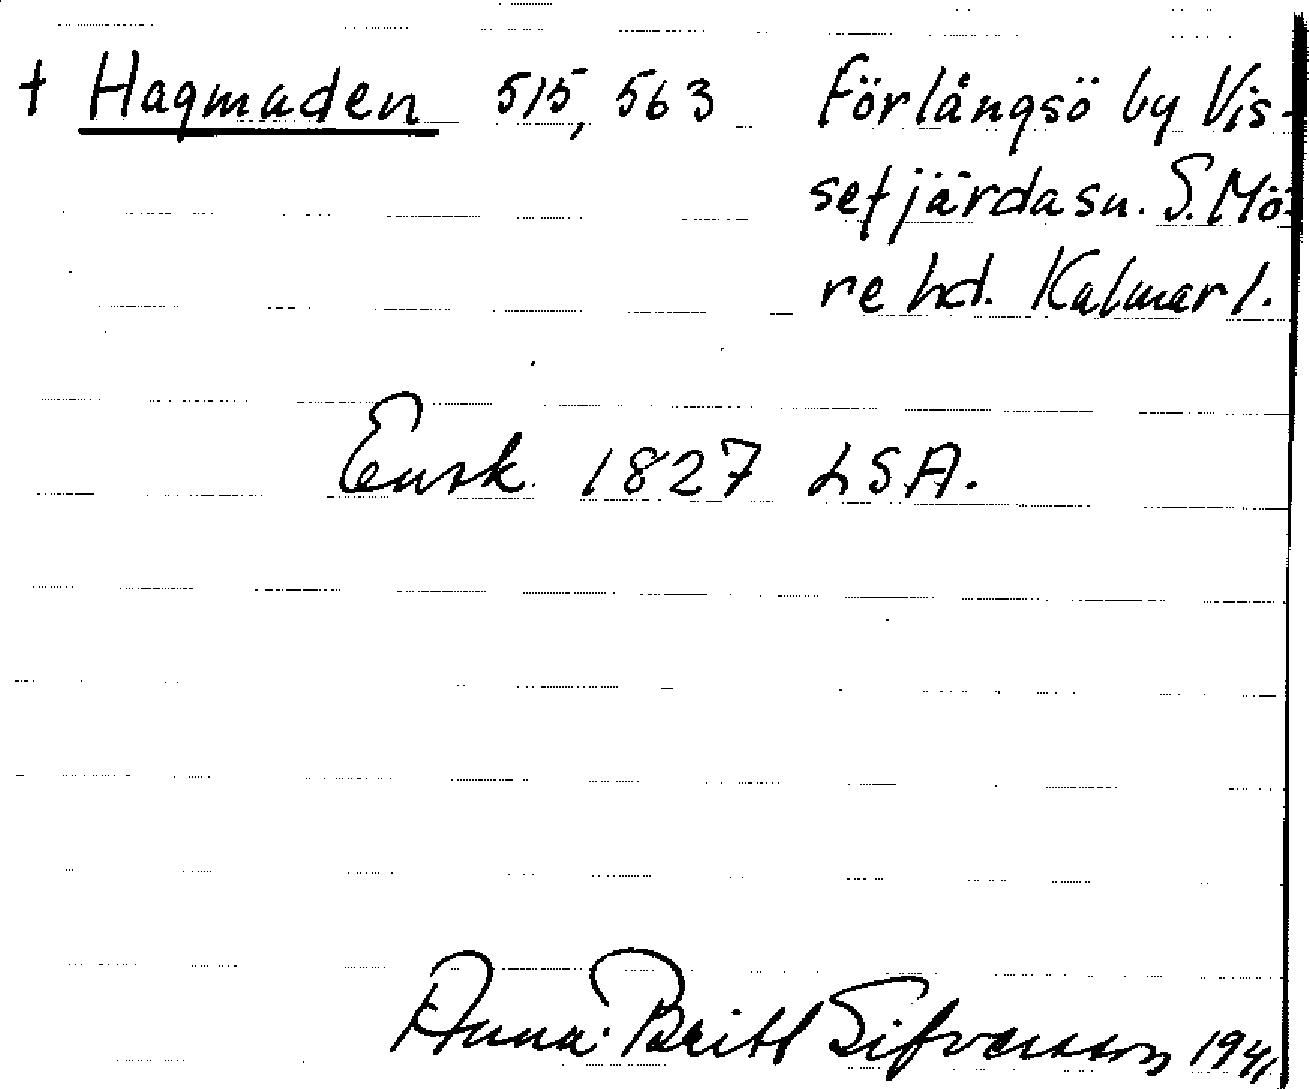 † Hagmaden 515, 563 Förlångsö by Vis-
sefjärda sn. S. Mö-
re hd. Kalmar l.
Ensk. 1827 LSA.
Anna-Britt Sifversson 1941